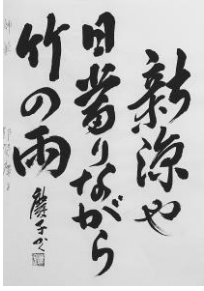 新涼や
日當りながら
竹の雨